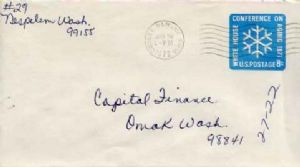 #29
Nespelem Wash.
99155
WHITE HOUSE
CONFERENCE ON
AGING 1971
U.S. POSTAGE 8¢
Capital Finance
Omak Wash.
98841
27-22